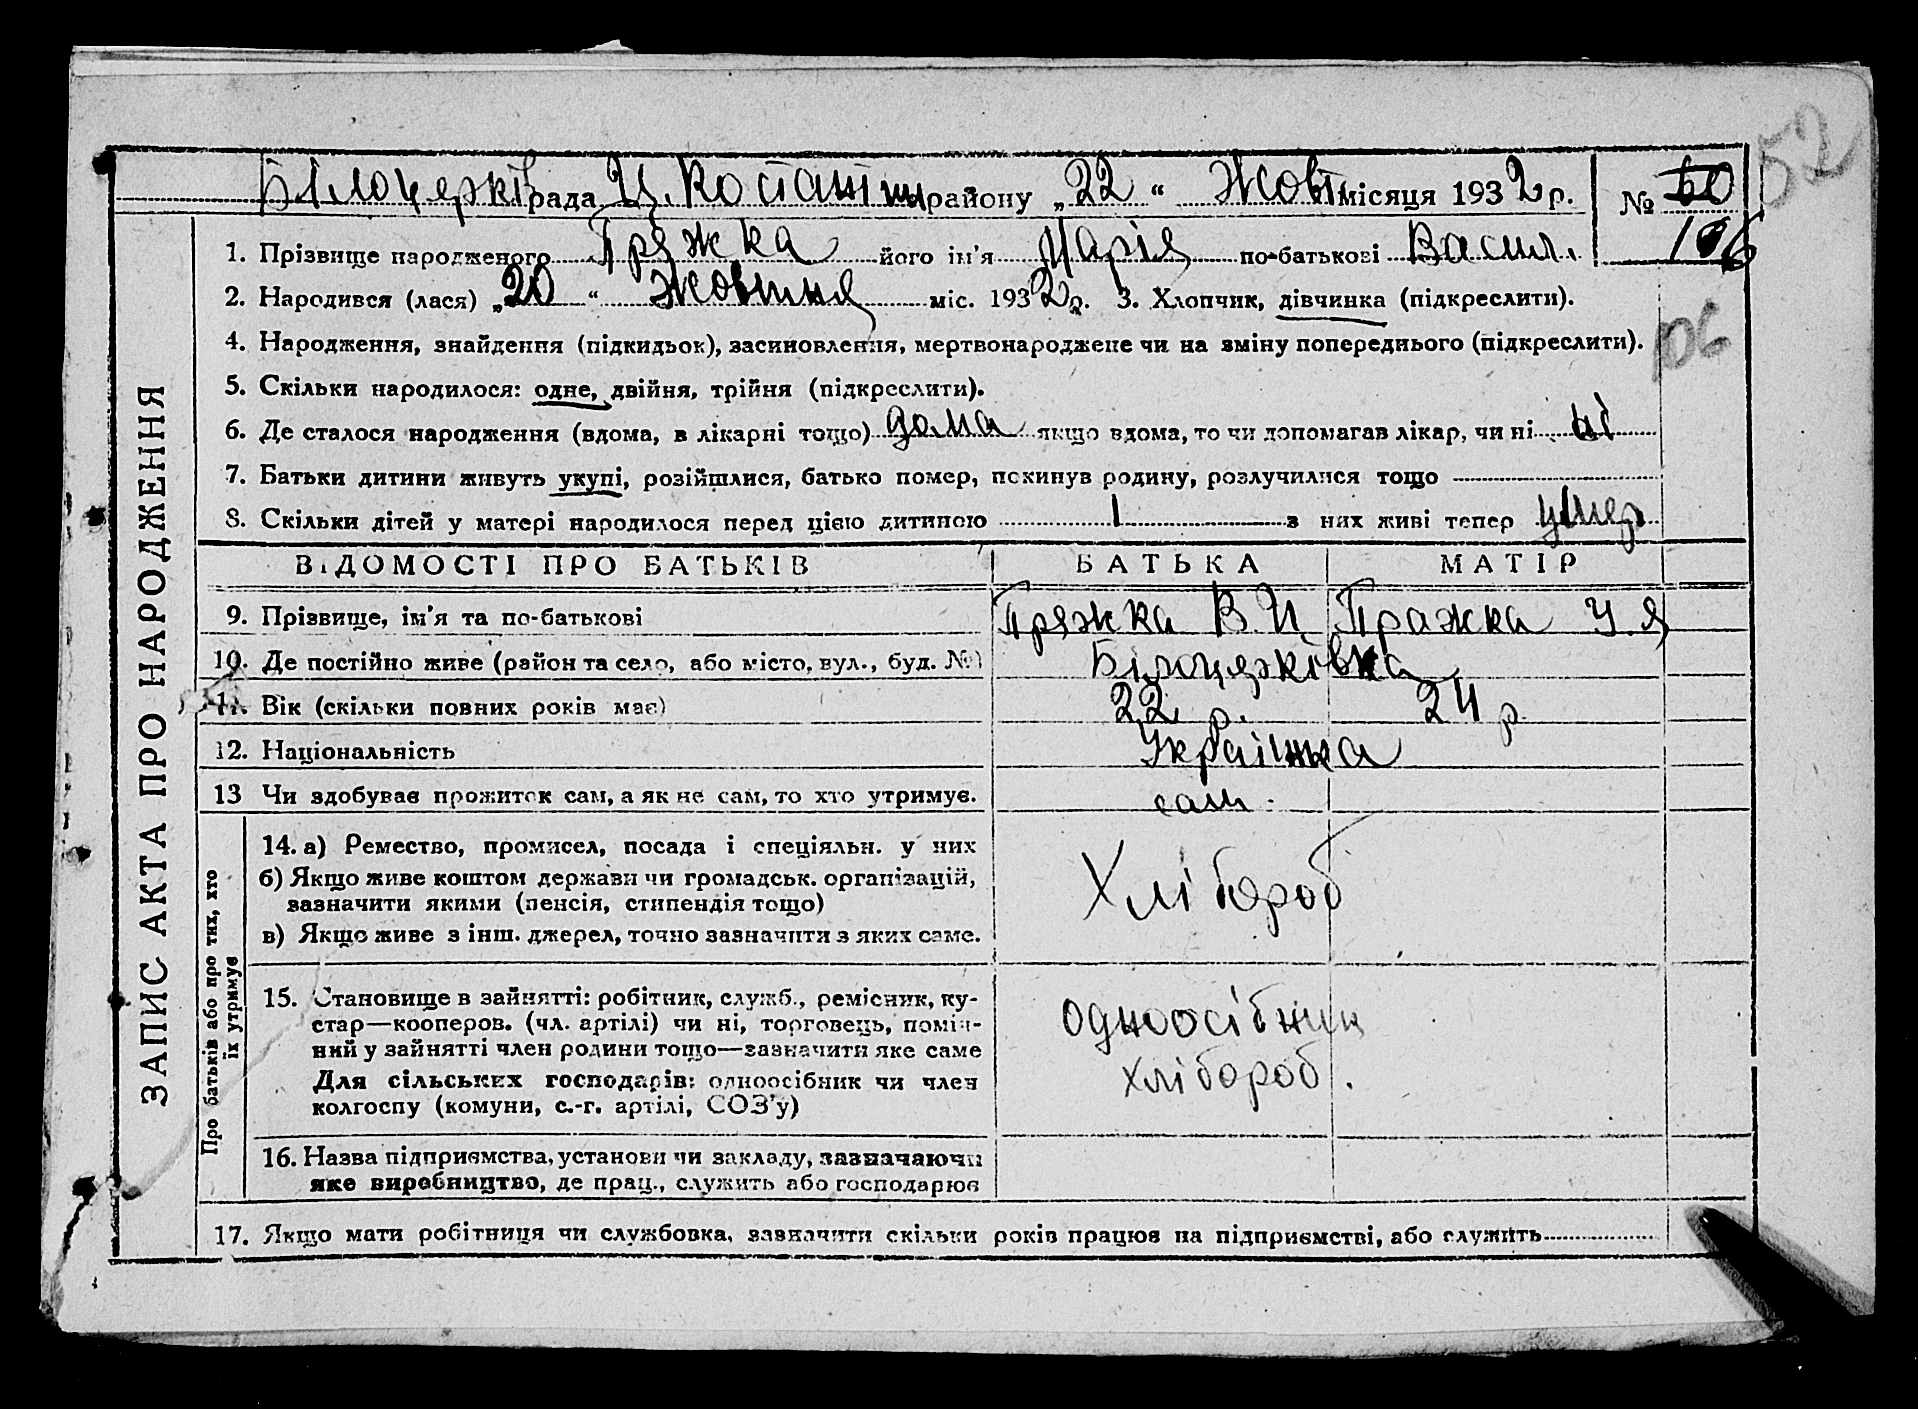 52
Білоцерків рада Ц. Костянтин району „22 “ Жовт місяця 1932 р. № 50
106
1. Прізвище народженого Пряжка його ім'я Марія по-батькові Васил.
2. Народився (лася) „20 “ Жовтня міс. 1932 р. 3. Хлопчик, дівчинка (підкреслити).
4. Народження, знайдення (підкидьок), засиновлення, мертвонароджене чи на зміну попереднього (підкреслити).
106
5. Скільки народилося: одне, двійня, трійня (підкреслити).
6. Де сталося народження (вдома, в лікарні тощо) дома якщо вдома, то чи допомагав лікар, чи ні ні
7. Батьки дитини живуть укупі, розійшлися, батько помер, покинув родину, розлучилися тощо
8. Скільки дітей у матері народилося перед цією дитиною 1 з них живі тепер умер
ЗАПИС АКТА ПРО НАРОДЖЕННЯ
ВІДОМОСТІ ПРО БАТЬКІВ БАТЬКА МАТІР
9. Прізвище, ім'я та по-батькові Пряжка В. И Пражка У Я
10. Де постійно живе (район та село, або місто, вул., буд. №) Білоцерківка
11. Вік (скільки повних років має) 22 р. 24 р
12. Національність Українка
13 Чи здобуває прожиток сам, а як не сам, то хто утримує. сам.
Про батьків або про тих, хто їх утримує
14. а) Ремество, промисел, посада і спеціяльн. у них
б) Якщо живе коштом держави чи громадськ. організацій,
зазначити якими (пенсія, стипендія тощо) Хлібороб
в) Якщо живе з інш. джерел, точно зазначити з яких саме.
15. Становище в зайнятті: робітник, служб., ремісник, ку-
стар—кооперов. (чл. артілі) чи ні, торговець, поміч- одноосібник
ний у зайнятті член родини тощо—зазначити яке саме
Для сільських господарів: одноосібник чи член хлібороб.
колгоспу (комуни, с.-г. артілі, СОЗ'у)
16. Назва підприємства, установи чи закладу, зазначаючи
яке виробництво, де прац., служить або господарює
17. Якщо мати робітниця чи службовка, зазначити скільки років працює на підприємстві, або служить